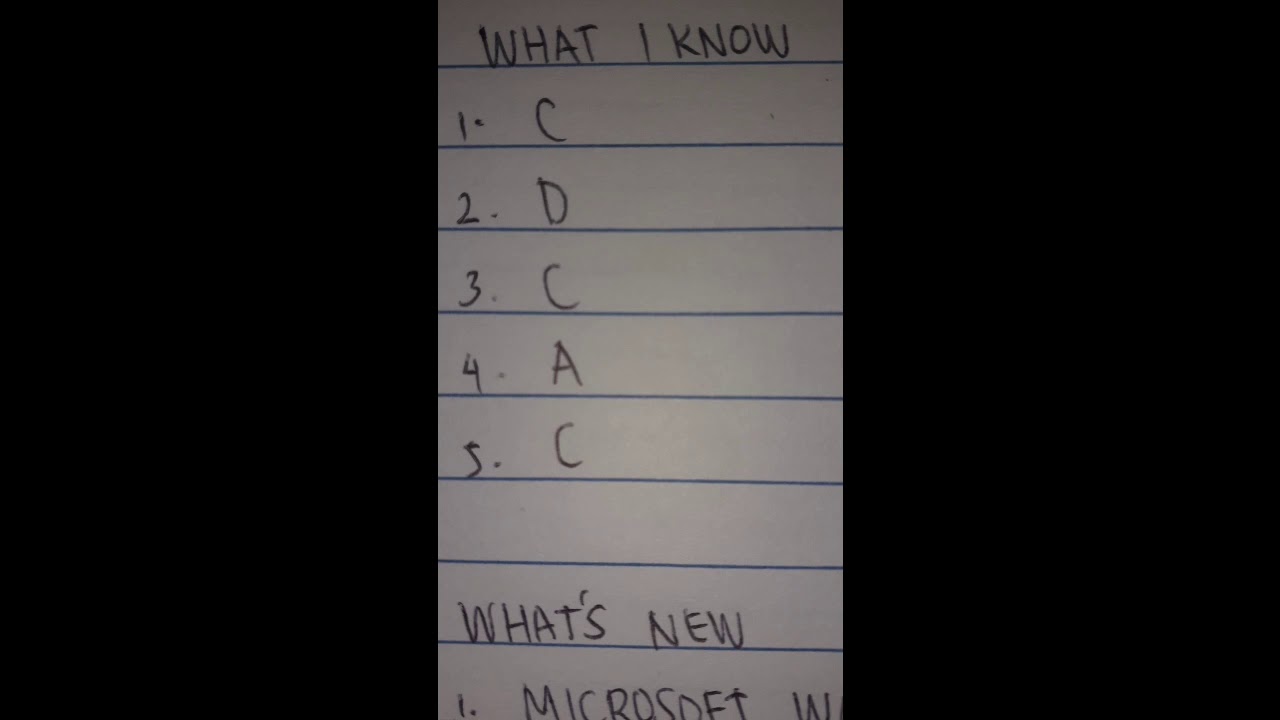 WHAT I KNOW
1. C
2. D
3. C
4. A
5. C
WHAT'S NEW
1. MICROSOFT